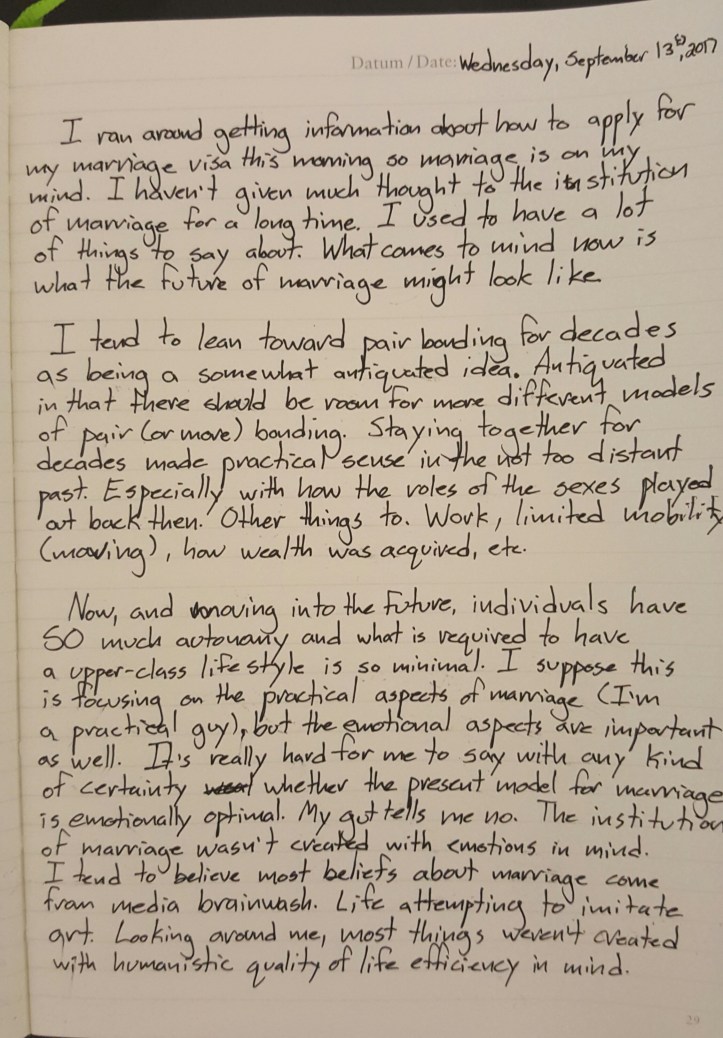 Datum / Date: Wednesday, September 13th, 2017
I ran around getting information about how to apply for
my marriage visa this morning so marriage is on my
mind. I haven't given much thought to the institution
of marriage for a long time. I used to have a lot
of things to say about. What comes to mind now is
what the future of marriage might look like
I tend to lean toward pair bonding for decades
as being a somewhat antiquated idea. Antiquated
in that there should be room for more different models
of pair (or more) bonding. Staying together for
decades made practical sense in the not too distant
past. Especially with how the roles of the sexes played
out back then. Other things to. Work, limited mobility
(moving), how wealth was acquired, etc.
Now, and moving into the future, individuals have
SO much autonomy and what is required to have
a upper-class lifestyle is so minimal. I suppose this
is focusing on the practical aspects of marriage (I'm
a practical guy), but the emotional aspects are important
as well. It's really hard for me to say with any kind
of certainty whether the present model for marriage
is emotionally optimal. My gut tells me no. The institution
of marriage wasn't created with emotions in mind.
I tend to believe most beliefs about marriage come
from media brainwash. Life attempting to imitate
art. Looking around me, most things weren't created
with humanistic quality of life efficiency in mind.
29